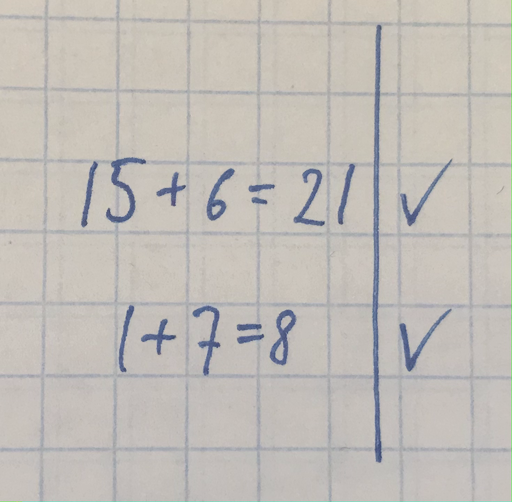 15 + 6 = 21 ✓
1 + 7 = 8 ✓